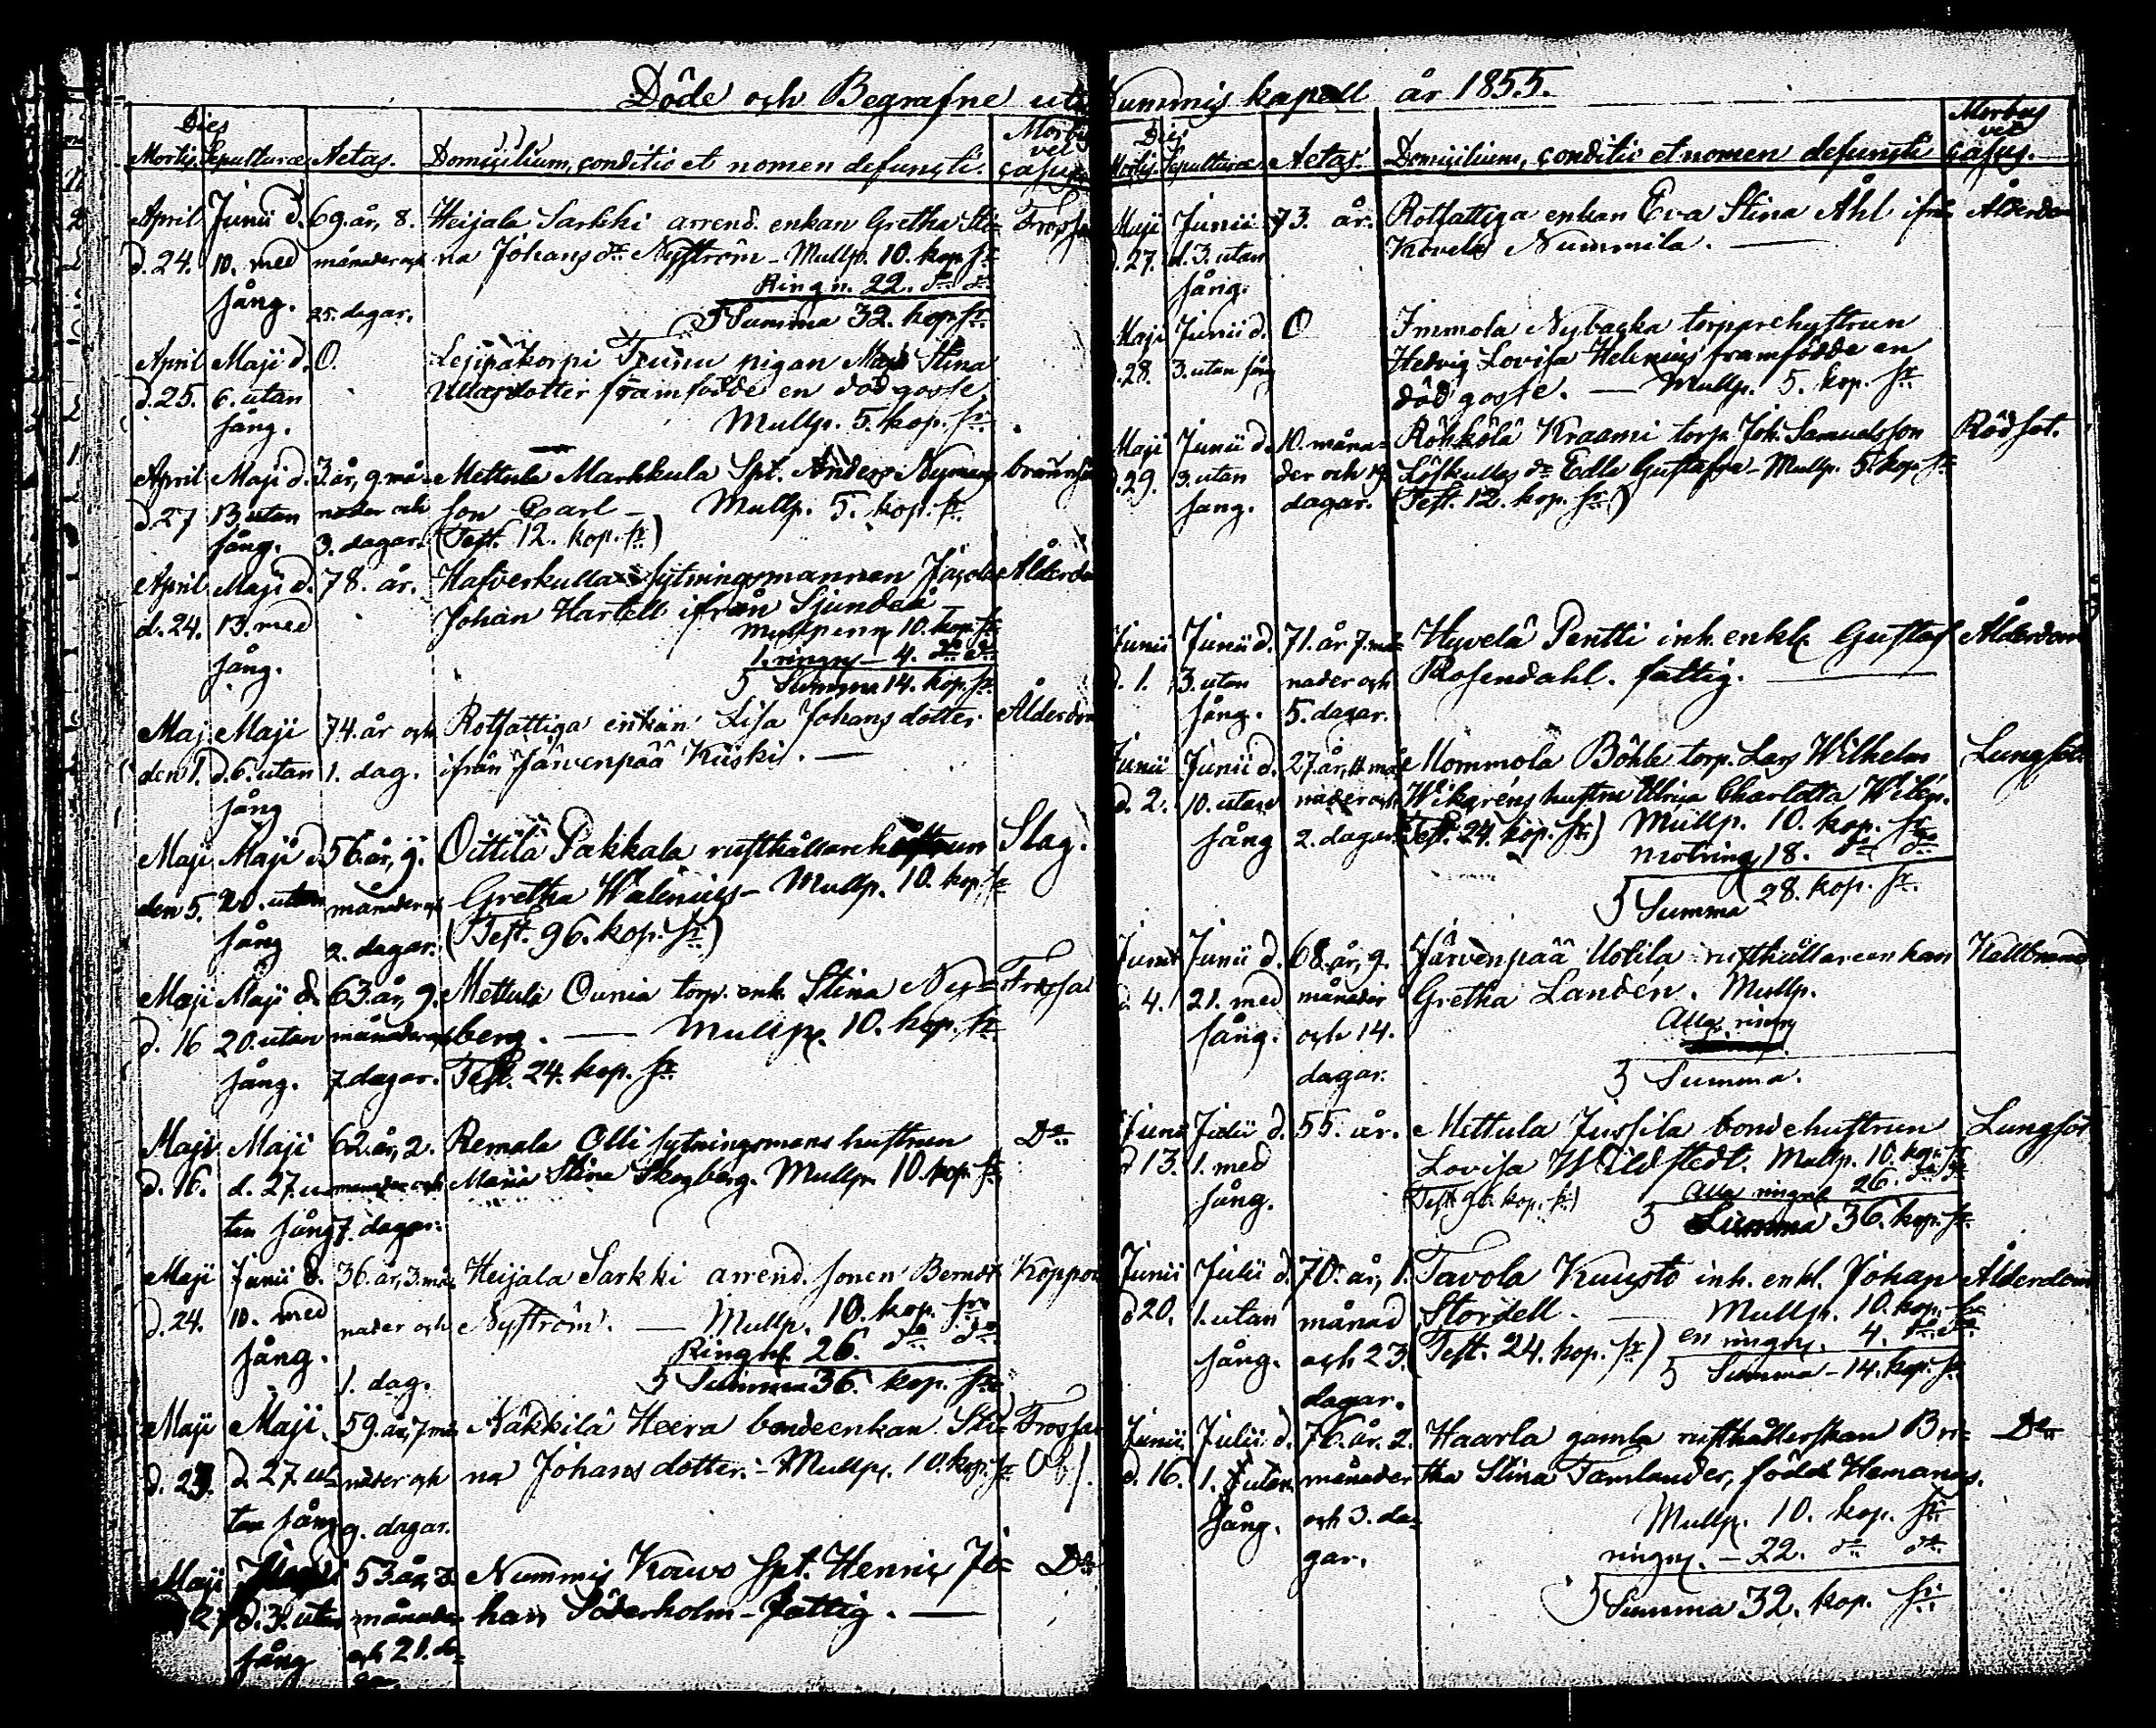 Döde och Begrafne uti Nummis kapell år 1855.
Dies
Mortis. Sepulturæ Aetas. Domicilium, conditio et nomen defuncti. Morbus vel casus
April Junii d. 69. år, 8. Heijala Sarkki arrend. enkan Gretha Sti- Frossa
d. 24. 10. med månader och na Johans dr Nyström - Mullp. 10. kop. sr
sång. 25. dagar. Ringn. 22. do do
Summa 32. kop. sr.
April Maji d. 0. pigan Maja Stina
d. 25. 6. utan framfödde en död gosse
sång. Mullp. 5. kop. sr.
April Maji d. 3. år, 9. må- Mettula Markkula Spt. Anders Nymans
d. 27 13. utan nader och son Carl - Mullp. 5. kop. sr.
sång. 3. dagar. (Test. 12. kop. sr)
April Maji d. 78. år. Hafverkulla sytningsmannen Jacob Ålderdom
d. 24. 13. med Johan Hartell ifrån Sjundeå -
sång. Mullpenn. 10. kop. sr
1. ringn - 4. do do
Summa 14. kop. sr.
Maj. Maji 74. år och Rotfattiga enkan Lisa Johans dotter Ålderdom
den 1. d. 6. utan 1. dag. ifrån Järvenpää Kuski. —
sång
Maji Maji d. 56. år, 9. Oittila Pakkala rusthållarehustrun Slag.
den 5. 20. utan månader och Gretha Walenius - Mullp. 10. kop. sr
sång 2. dagar. (Test. 96. kop. sr.)
Maji Maji d. 63. år, 9. Mettula Ounia torp. enk. Stina Ny- Frossa
d. 16 20. utan månader och berg. — Mullp. 10. kop. sr.
sång. 7. dagar. Test. 24. kop. sr
Maji Maji 62. år, 2. Remala Olli sytningsmans hustrun Do
d. 16. d. 27. u- månader och Maria Stina Skogberg. Mullp. 10. kop. sr.
tan sång 7. dagar.
Maji Junii d. 36. år, 3. må- Heijala Sarkki arrend. sonen Berndt Koppor
d. 24. 10. med nader och Nyström. — Mullp. 10. kop. sr.
sång. 1. dag. Ringn. 26. do do
Summa 36. kop. sr.
Maji Maji. 59. år, 7. må- Näkkilä Heera bondeenkan Sti- Frossa
d. 23. d. 27. u- nader och na Johans dotter. - Mullp. 10. kop. sr
tan sång 9. dagar.
Maji 53. år, Nummis Kouvo Spt. Henric Jo- Do
d. 27 d. 3. utan månader han Söderholm - fattig. —
sång och 21. da-
Dies
Mortis. Sepulturæ Aetas. Domicilium, conditio et nomen defuncti Morbus vel casus.
Maji Junii 73. år. Rotfattiga enkan Eva Stina Åhl ifrån Ålderdom
d. 27. d. 3. utan Kovela Nummila. —
sång.
Maji Junii d. 0 Immola Nybacka torparehustrun
d. 28. 3. utan sång Hedvig Lovisa Helenius framfödde en
död gosse. — Mullp. 5. kop. sr
Maji Junii d. 10. måna- Röhkölä Kraami torp. Joh. Samuelsson Rödsot.
d. 29. 3. utan der och 19. Löfkullas dr Edla Gustafva - Mullp. 5. kop. sr
sang. dagar. (Test. 12. kop. sr)
Junii Junii d. 71. år 7. må- Hyvelä Pentti inh. enkl. Gustaf Ålderdom
d. 1. 3. utan nader och Rosendahl. fattig. —
sång. 5. dagar.
Junii Junii d. 27. år, 11. må- Mommola Böhle torp. Lars Wilhelm Lungsot
d. 2. 10. utan nader och Wikgréns hustru Ulrica Charlotta
sång 2. dagar. (Test. 24. kop. sr.) Mullp. 10. kop. sr
18. do do
Summa 28. kop. sr.
Junii Junii d. 68. år, 9. Järvenpää Uotila rusthållareenkan Kallbrand
d. 4. 21. med månader Gretha Landén. Mullp.
sång. och 14. Alla ringn
dagar. Summa.
Junii Julii d. 55. år. Mettula Jussila bondehustrun Lungsot
d 13. 1. med Lovisa Wildstedt. Mullp. 10. kop. sr
sång. (Test 96. kop. sr) Alla ringn 26. do do
Summa 36. kop. sr.
Junii Julii d. 70. år, 1. Tavola Kuusto inh. enkl. Johan Ålderdom
d 20. 1. utan månad Stordell. — Mullp. 10. kop. sr
sång. och 23. (Test. 24. kop. sr) en ringn. 4. do do
dagar. Summa - 14. kop. sr
Junii Julii d. 76. år. 2. Haarla gamla rusthållerskan Bri- Do
d. 16. 1. utan månader tha Stina Tamlander, född Hemanus.
sång. och 3. da- Mullp. 10. kop. sr
gar. ringn. - 22. do do
Summa 32. kop. sr.